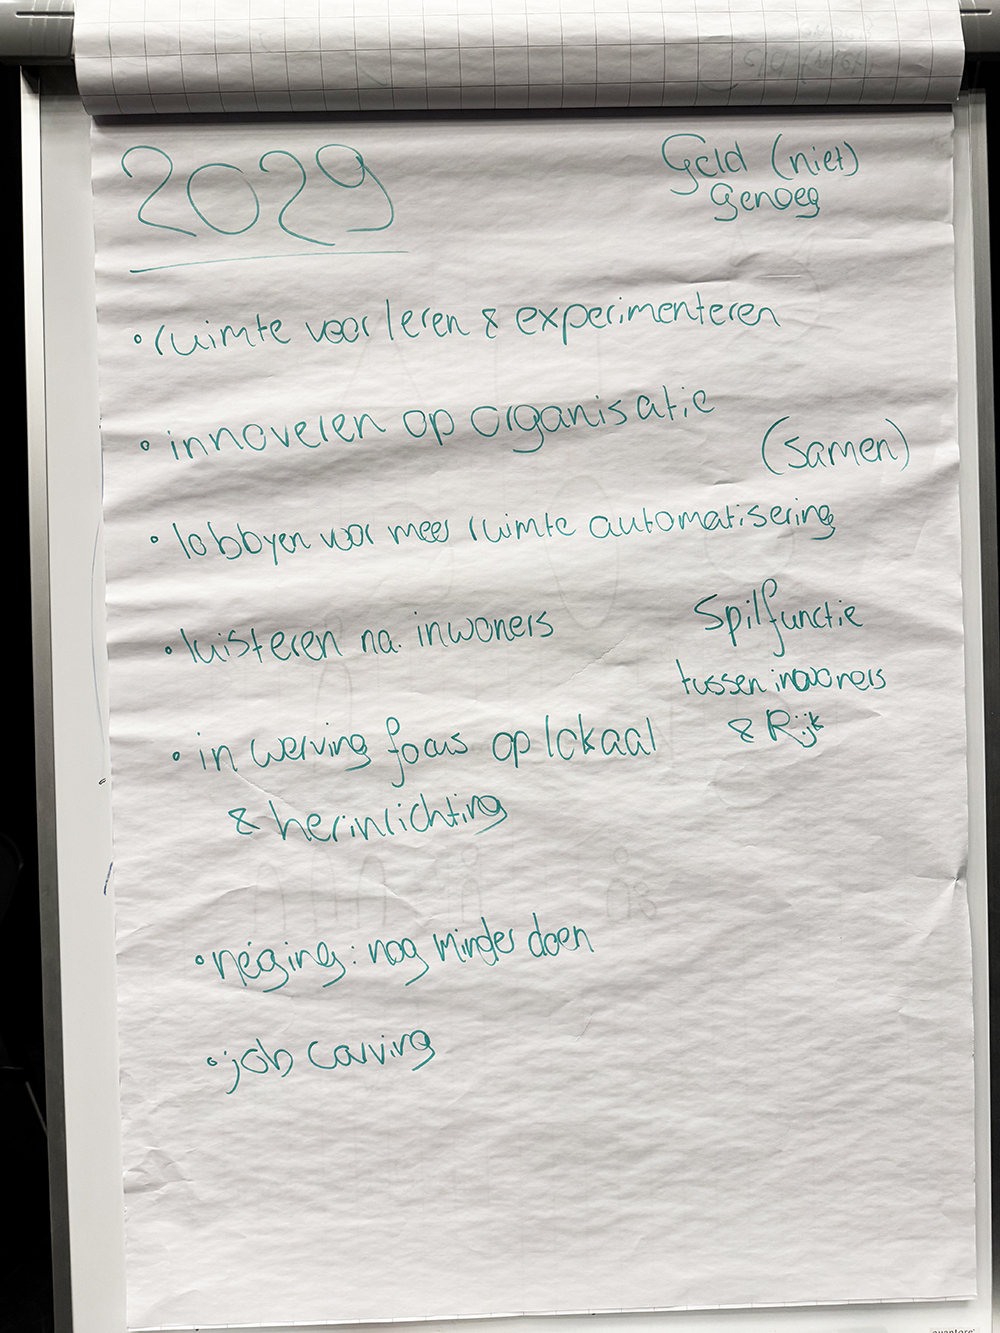 2029
Geld (niet)
genoeg
• ruimte voor leren & experimenteren
• innoveren op organisatie
(samen)
• lobbyen voor meer ruimte automatisering
• luisteren na. inwoners
Spilfunctie
tussen inwoners
& Rijk
• in werving focus op lokaal
& herinrichting
• neiging: nog minder doen
• job carving